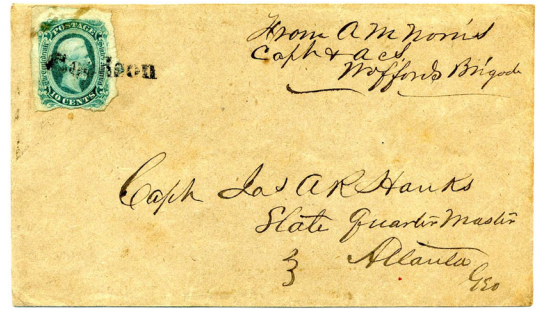 POSTAGE
10 CENTS
From A M Norris
Capt & a cs
Wofford's Brigade
Capt Jas A R Hanks
State Quarter Master
Atlanta
Geo